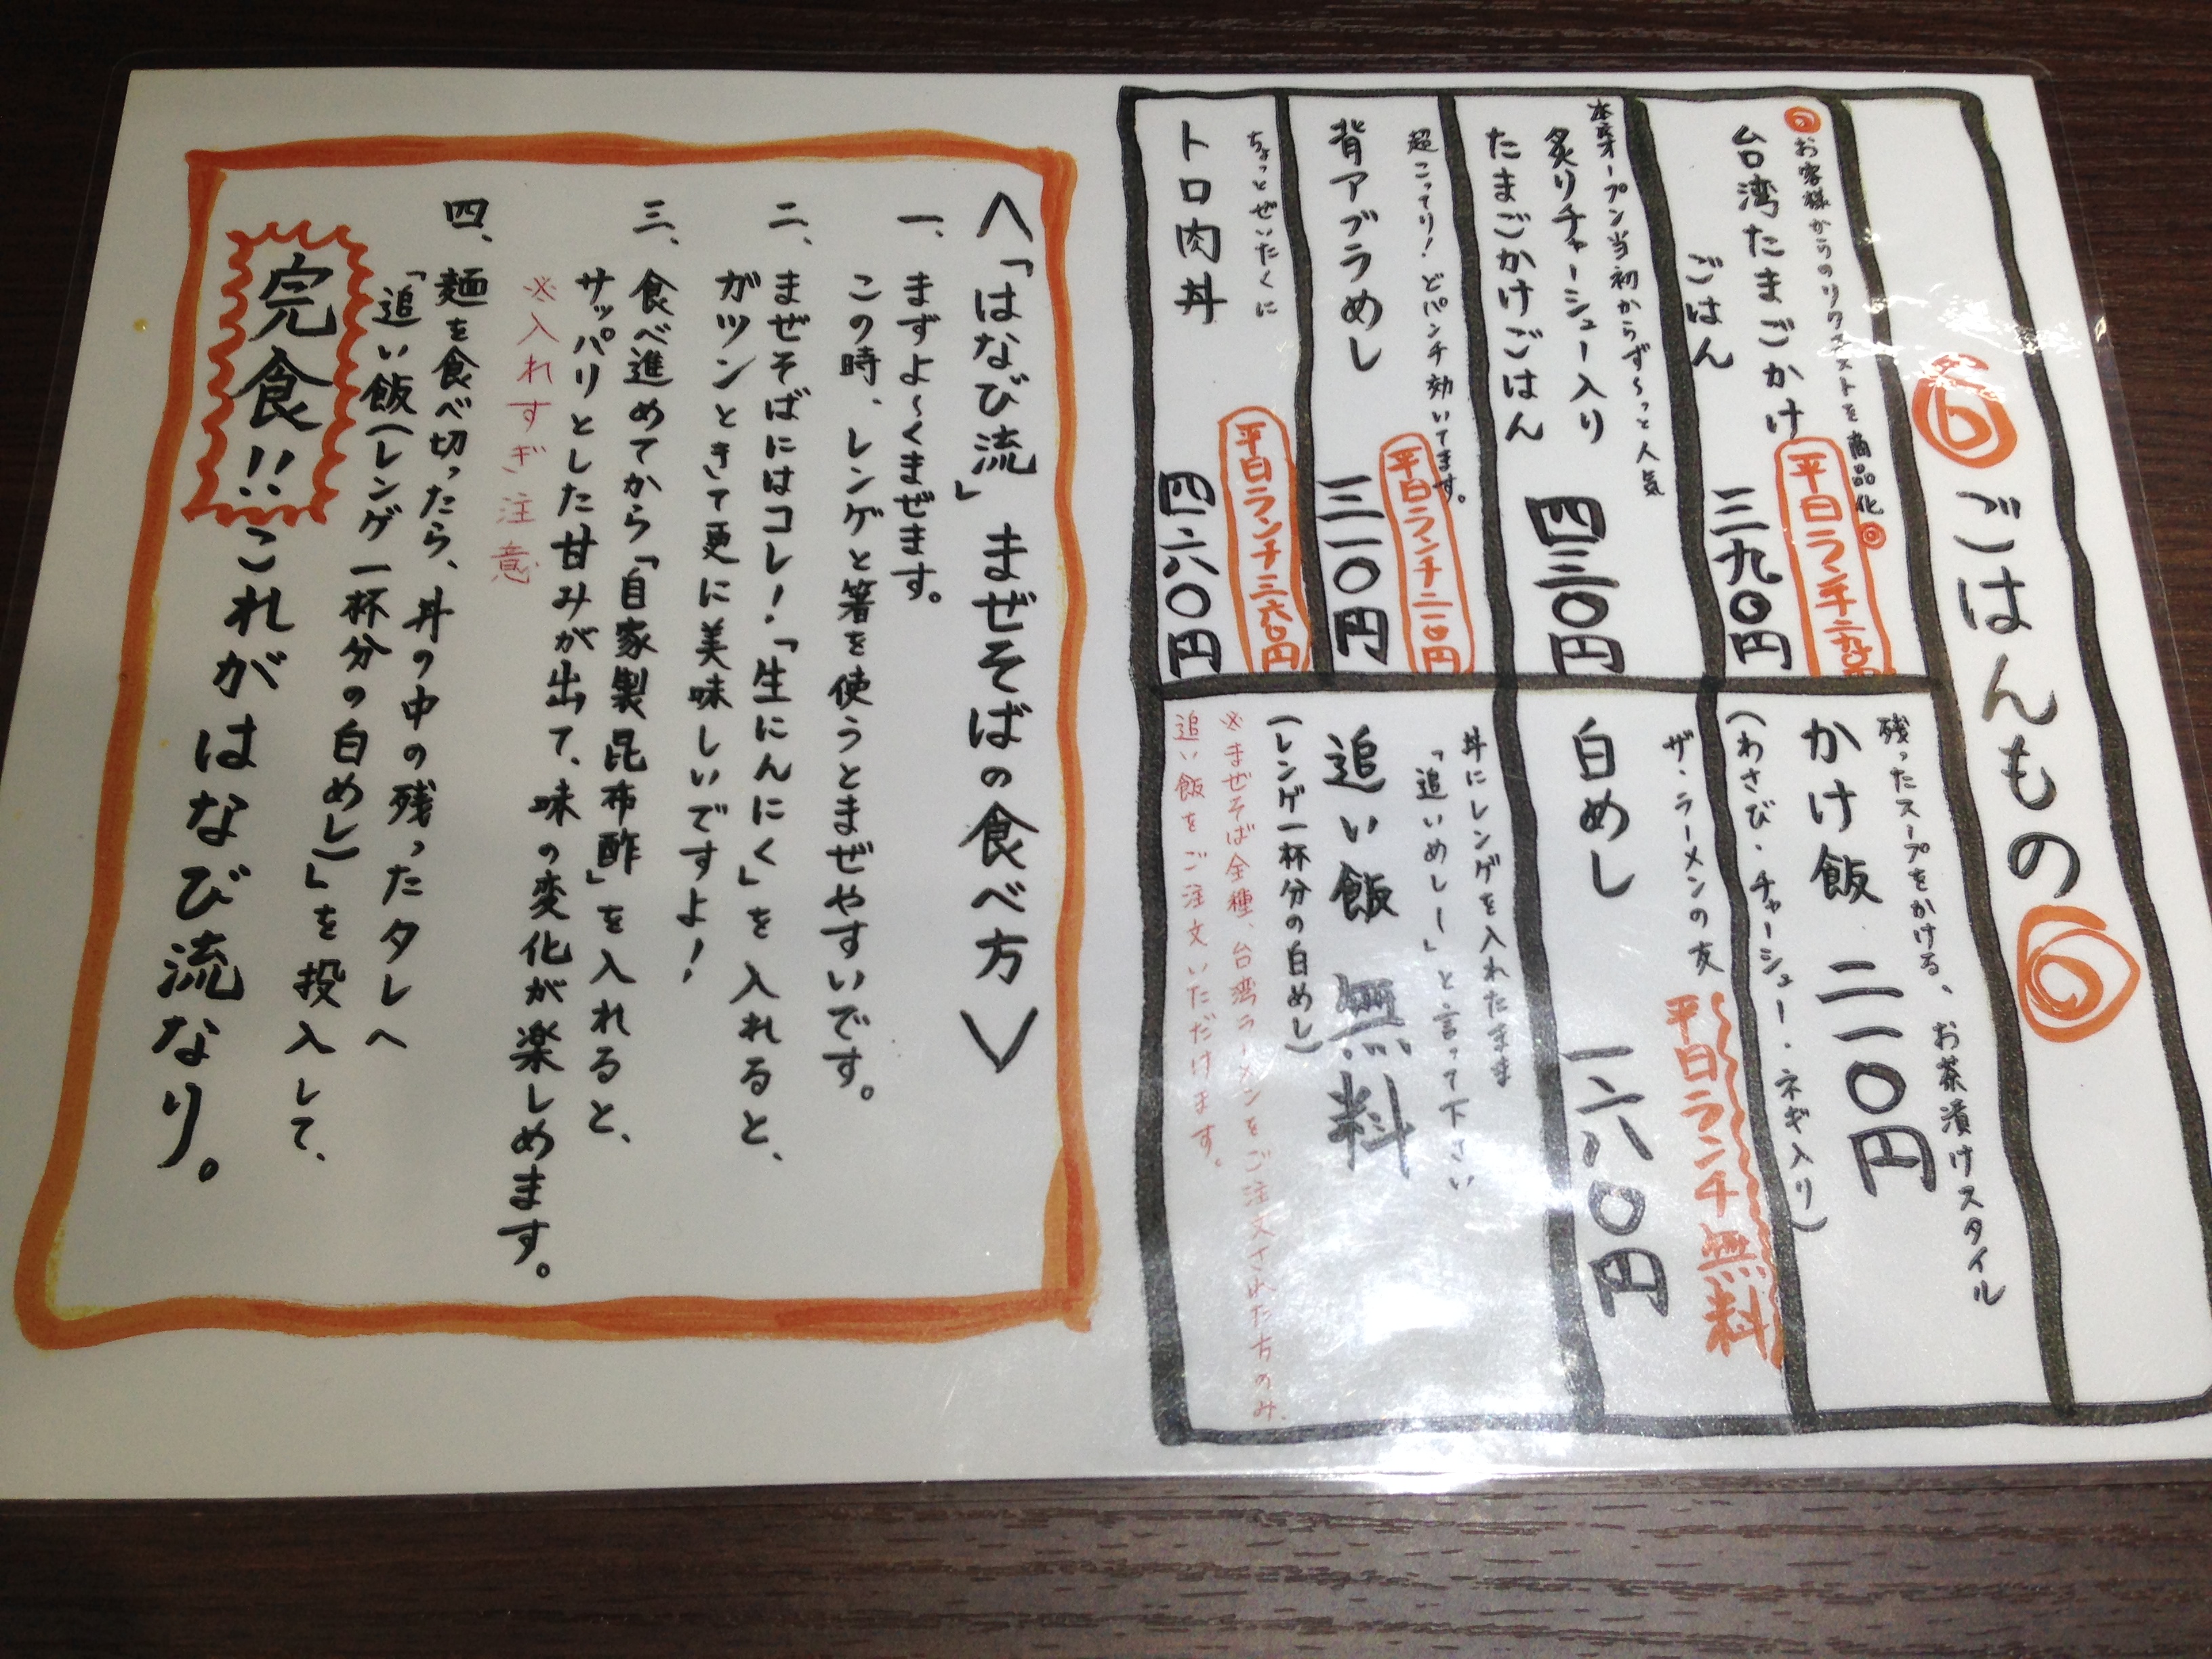 ごはんもの
お客様からのリクエストを商品化
台湾たまごかけ
ごはん
平日ランチ二九〇円
三九〇円
本店オープン当初からず〜っと人気
炙りチャーシュー入り
たまごかけごはん
四三〇円
超こってり！どパンチ効いてます。
背アブラめし
平日ランチ二一〇円
三一〇円
ちょっとぜいたくに
トロ肉丼
平日ランチ三六〇円
四六〇円
残ったスープをかける、お茶漬けスタイル
かけ飯 二一〇円
(わさび・チャーシュー・ネギ入り)
ザ・ラーメンの友
平日ランチ無料
白めし 一六〇円
丼にレンゲを入れたまま
「追いめしー」と言って下さい
追い飯 無料
(レンゲ一杯分の白めし)
※まぜそば全種、台湾ラーメンをご注文された方のみ、
追い飯をご注文いただけます。
＜「はなび流」まぜそばの食べ方＞
一、まずよ〜くまぜます。
この時、レンゲと箸を使うとまぜやすいです。
二、まぜそばにはコレ！「生にんにく」を入れると、
ガツンときて更に美味しいですよ！
三、食べ進めてから「自家製昆布酢」を入れると、
サッパリとした甘みが出て、味の変化が楽しめます。
※入れすぎ注意
四、麺を食べ切ったら、丼の中の残ったタレへ
「追い飯(レンゲ一杯分の白めし)」を投入して、
完食!!これがはなび流なり。